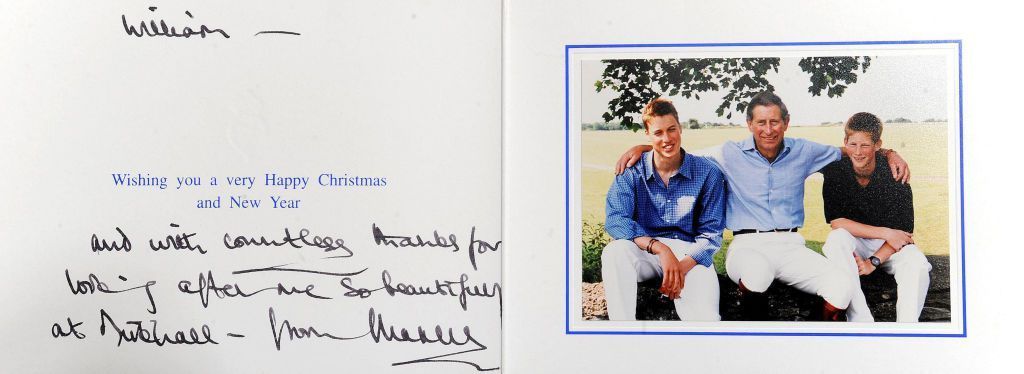 William —
Wishing you a very Happy Christmas
and New Year
and with countless thanks for
looking after me so beautifully
at — from